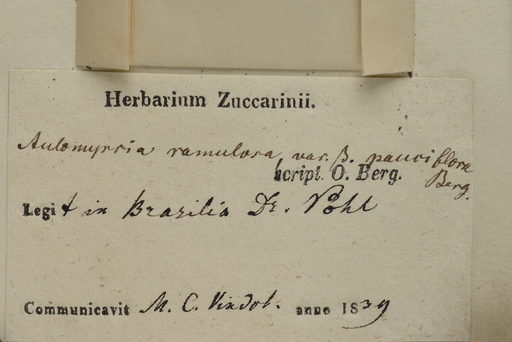 Herbarium Zuccarinii.
Aulomyrcia ramulosa var. β. pauciflora Berg.
script. O. Berg.
Legit in Brazilia Dr. Pohl
Communicavit M. C. Vindob. anno 1839